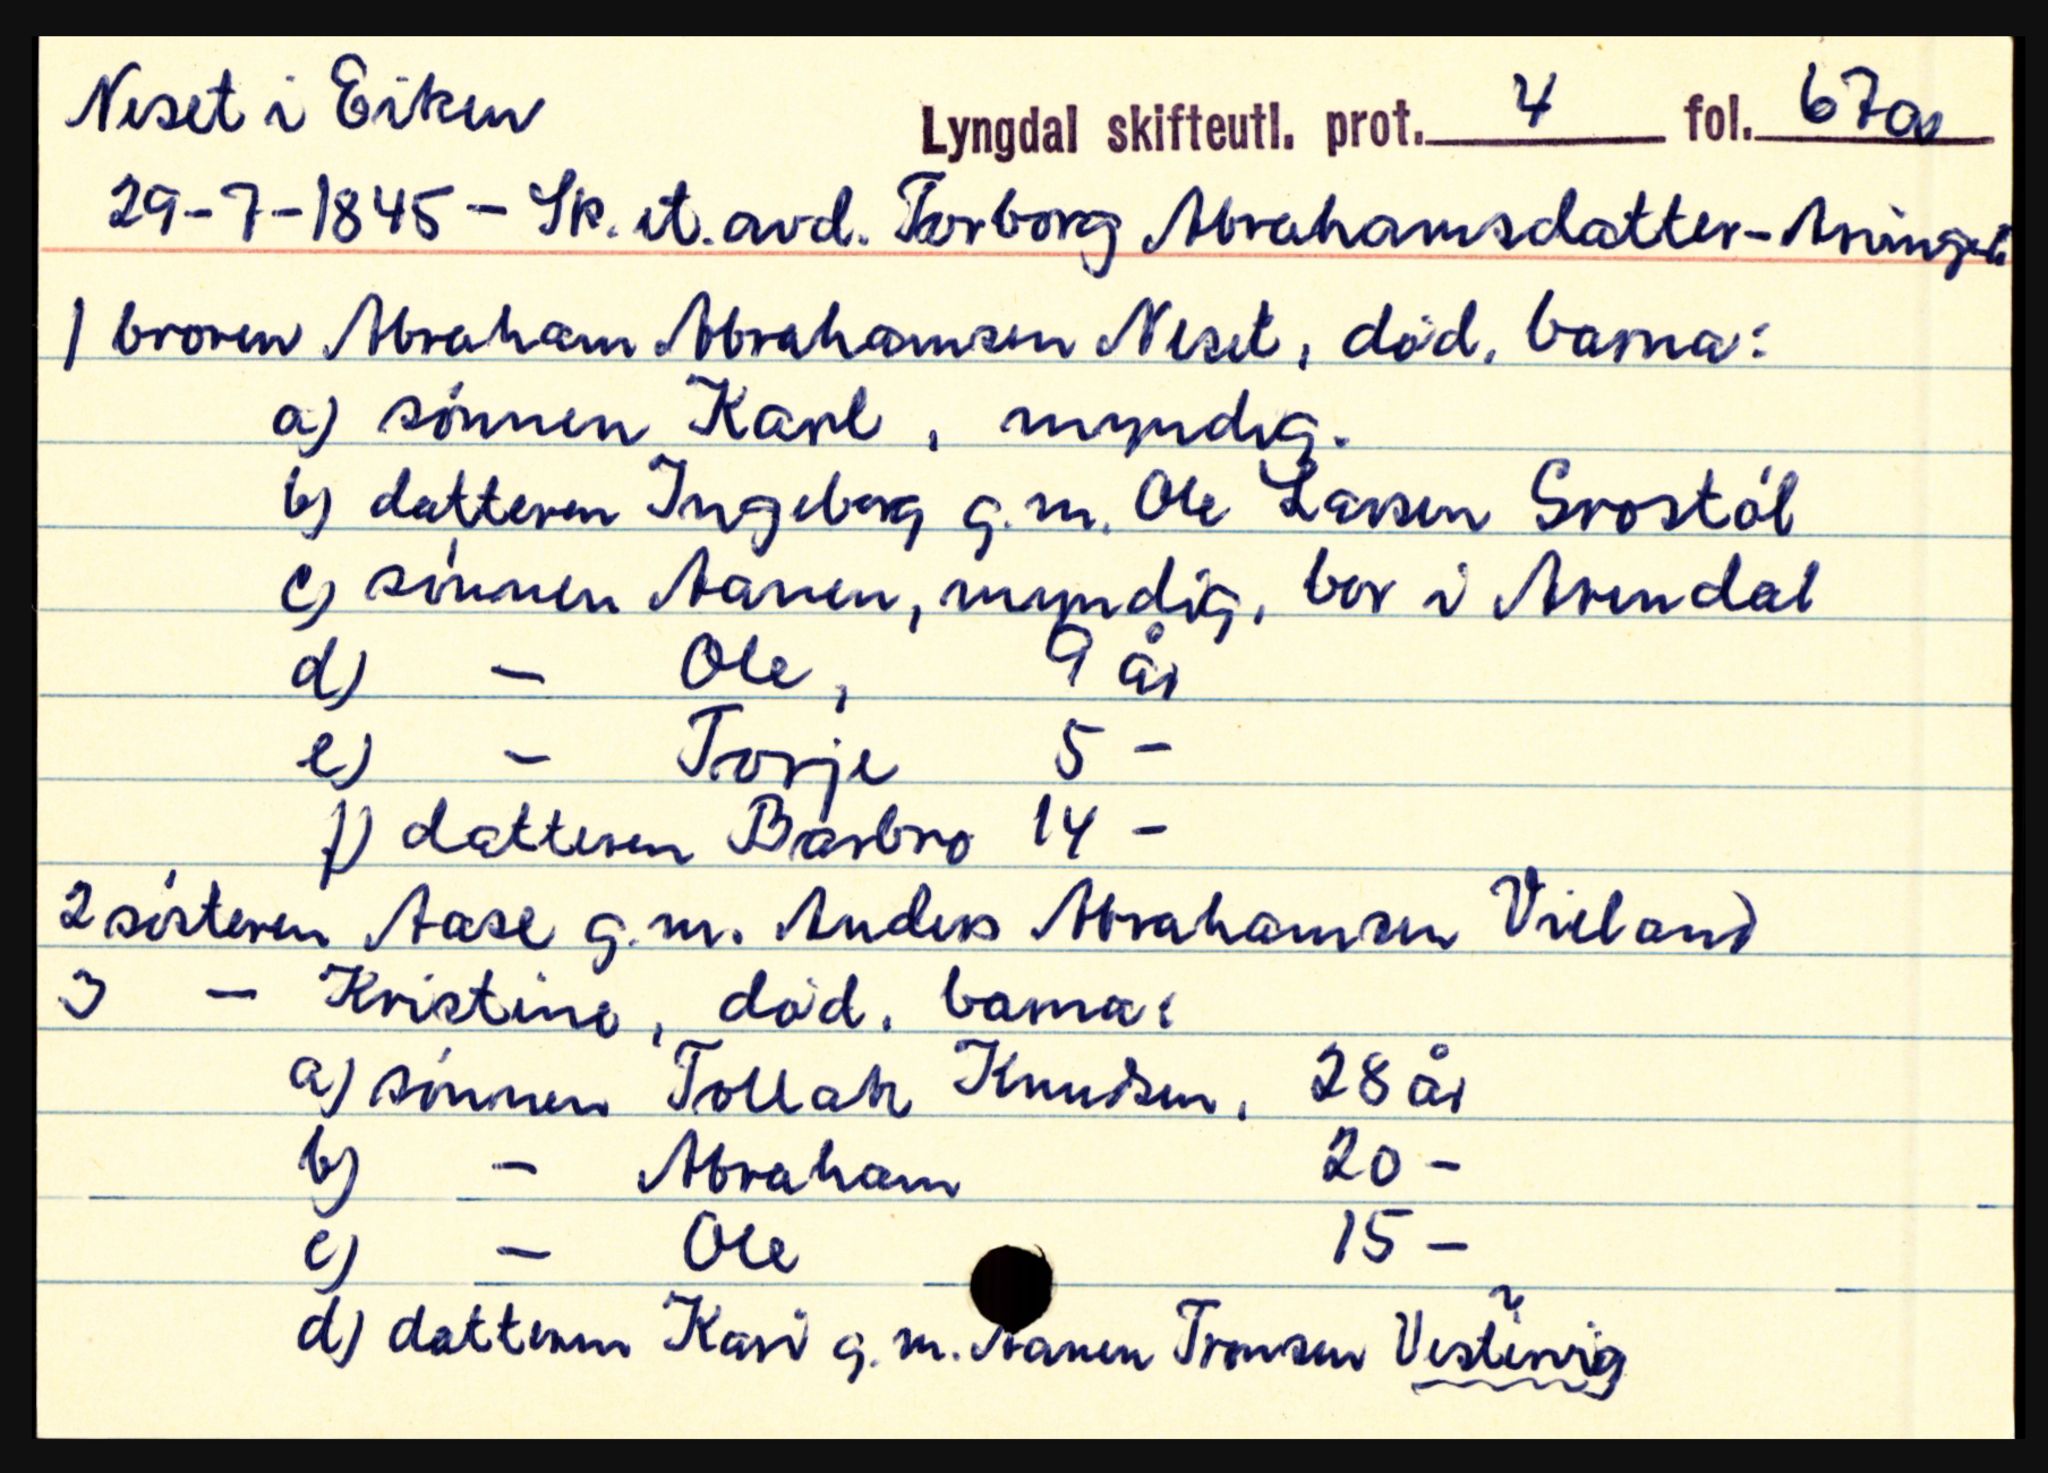 Neset i Eiken
Lyngdal skifteutl. prot. 4 fol. 67a
29-7-1845 - Sk. et. avd. Torborg Abrahamsdatter-Arvinger:
1 broren Abraham Abrahamsen Neset, død, barna:
a) sønnen Karl, myndig.
b) datteren Ingeborg g.m. Ole Larsen Grostøl
c) sønnen Aanen, myndig, bor i Arendal
d) - Ole, 9 år
e) - Torje 5 -
f) datteren Barbro 14 -
2 søsteren Aase g.m. Anders Abrahamsen Vieland
3 - Kristine, død, barna:
a) sønnen Tollak Knudsen, 28 år
b) - Abraham 20 -
c) - Ole 15 -
d) datteren Kari g.m. Aanen Tronsen